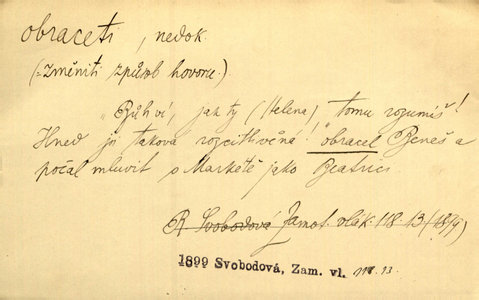 obraceti, nedok.
(=změniti způsob hovoru.)
„Bůh ví, jak ty (Helena) tomu rozumíš!
Hned je taková rozcitlivěná!" obracel Beneš a
počal mluvit o Markétě jako Beatrici.
R. Svobodová Zamot. vlák. 118. 13 (1899)
1899 Svobodová, Zam. vl. 118. 13